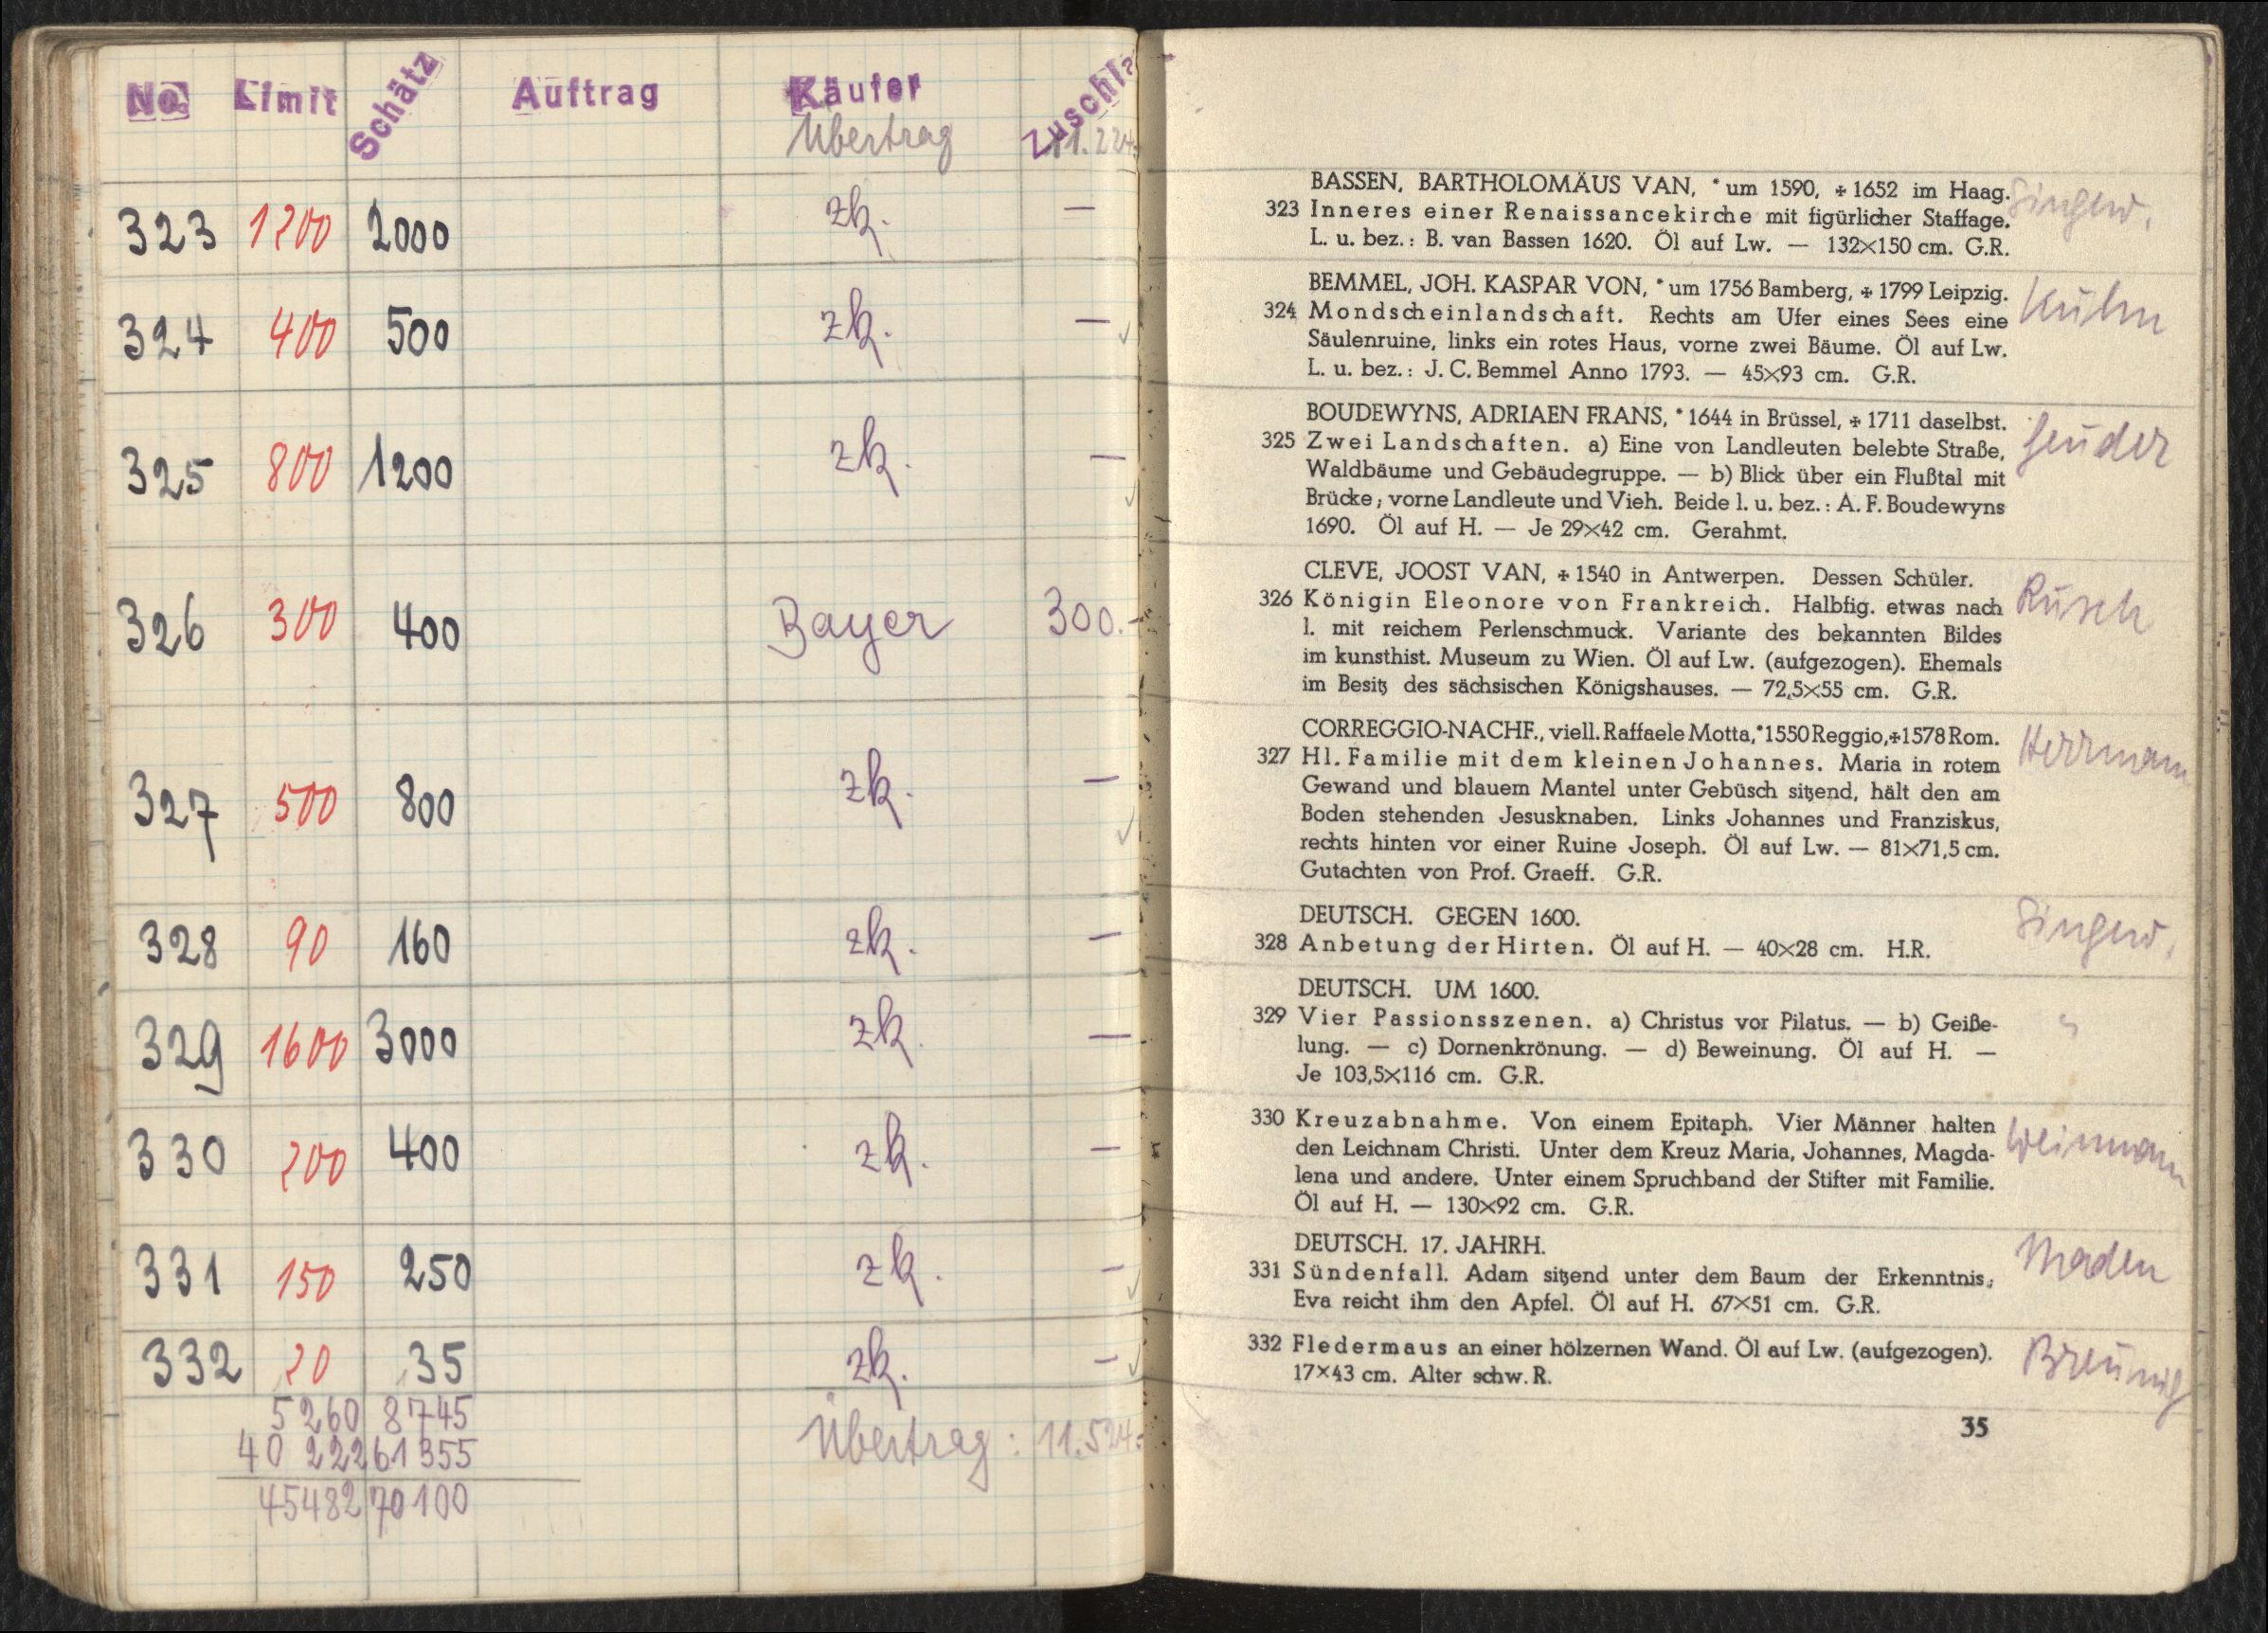 No. Limit Schätz Auftrag Käufer Zuschla
Übertrag 11.224.
323 1200 2000 zk. —
324 400 500 zk. —
325 800 1200 zk. —
326 300 400 Bayer 300.-
327 500 800 zk. —
328 90 160 zk. —
329 1600 3000 zk. —
330 200 400 zk. —
331 150 250 zk. —
332 20 35 zk. —
5260 8745
40 222 61 355 Übertrag: 11.524.-
45482 70 100
BASSEN, BARTHOLOMÄUS VAN, * um 1590, + 1652 im Haag.
323 Inneres einer Renaissancekirche mit figürlicher Staffage.
L. u. bez.: B. van Bassen 1620. Öl auf Lw. — 132×150 cm. G.R.
BEMMEL, JOH. KASPAR VON, * um 1756 Bamberg, + 1799 Leipzig.
324 Mondscheinlandschaft. Rechts am Ufer eines Sees eine Kuhn
Säulenruine, links ein rotes Haus, vorne zwei Bäume. Öl auf Lw.
L. u. bez.: J. C. Bemmel Anno 1793. — 45×93 cm. G.R.
BOUDEWYNS, ADRIAEN FRANS, * 1644 in Brüssel, + 1711 daselbst.
325 Zwei Landschaften. a) Eine von Landleuten belebte Straße,
Waldbäume und Gebäudegruppe. — b) Blick über ein Flußtal mit
Brücke; vorne Landleute und Vieh. Beide l. u. bez.: A. F. Boudewyns
1690. Öl auf H. — Je 29×42 cm. Gerahmt.
CLEVE, JOOST VAN, + 1540 in Antwerpen. Dessen Schüler.
326 Königin Eleonore von Frankreich. Halbfig. etwas nach Rusch
l. mit reichem Perlenschmuck. Variante des bekannten Bildes
im kunsthist. Museum zu Wien. Öl auf Lw. (aufgezogen). Ehemals
im Besitz des sächsischen Königshauses. — 72,5×55 cm. G.R.
CORREGGIO-NACHF., viell. Raffaele Motta, * 1550 Reggio, + 1578 Rom.
327 Hl. Familie mit dem kleinen Johannes. Maria in rotem Herrmann
Gewand und blauem Mantel unter Gebüsch sitzend, hält den am
Boden stehenden Jesusknaben. Links Johannes und Franziskus,
rechts hinten vor einer Ruine Joseph. Öl auf Lw. — 81×71,5 cm.
Gutachten von Prof. Graeff. G.R.
DEUTSCH. GEGEN 1600.
328 Anbetung der Hirten. Öl auf H. — 40×28 cm. H.R.
DEUTSCH. UM 1600.
329 Vier Passionsszenen. a) Christus vor Pilatus. — b) Geiße-
lung. — c) Dornenkrönung. — d) Beweinung. Öl auf H. —
Je 103,5×116 cm. G.R.
330 Kreuzabnahme. Von einem Epitaph. Vier Männer halten Weinmann
den Leichnam Christi. Unter dem Kreuz Maria, Johannes, Magda-
lena und andere. Unter einem Spruchband der Stifter mit Familie.
Öl auf H. — 130×92 cm. G.R.
DEUTSCH. 17. JAHRH.
331 Sündenfall. Adam sitzend unter dem Baum der Erkenntnis; Maden
Eva reicht ihm den Apfel. Öl auf H. 67×51 cm. G.R.
332 Fledermaus an einer hölzernen Wand. Öl auf Lw. (aufgezogen). Breunig
17×43 cm. Alter schw. R.
35